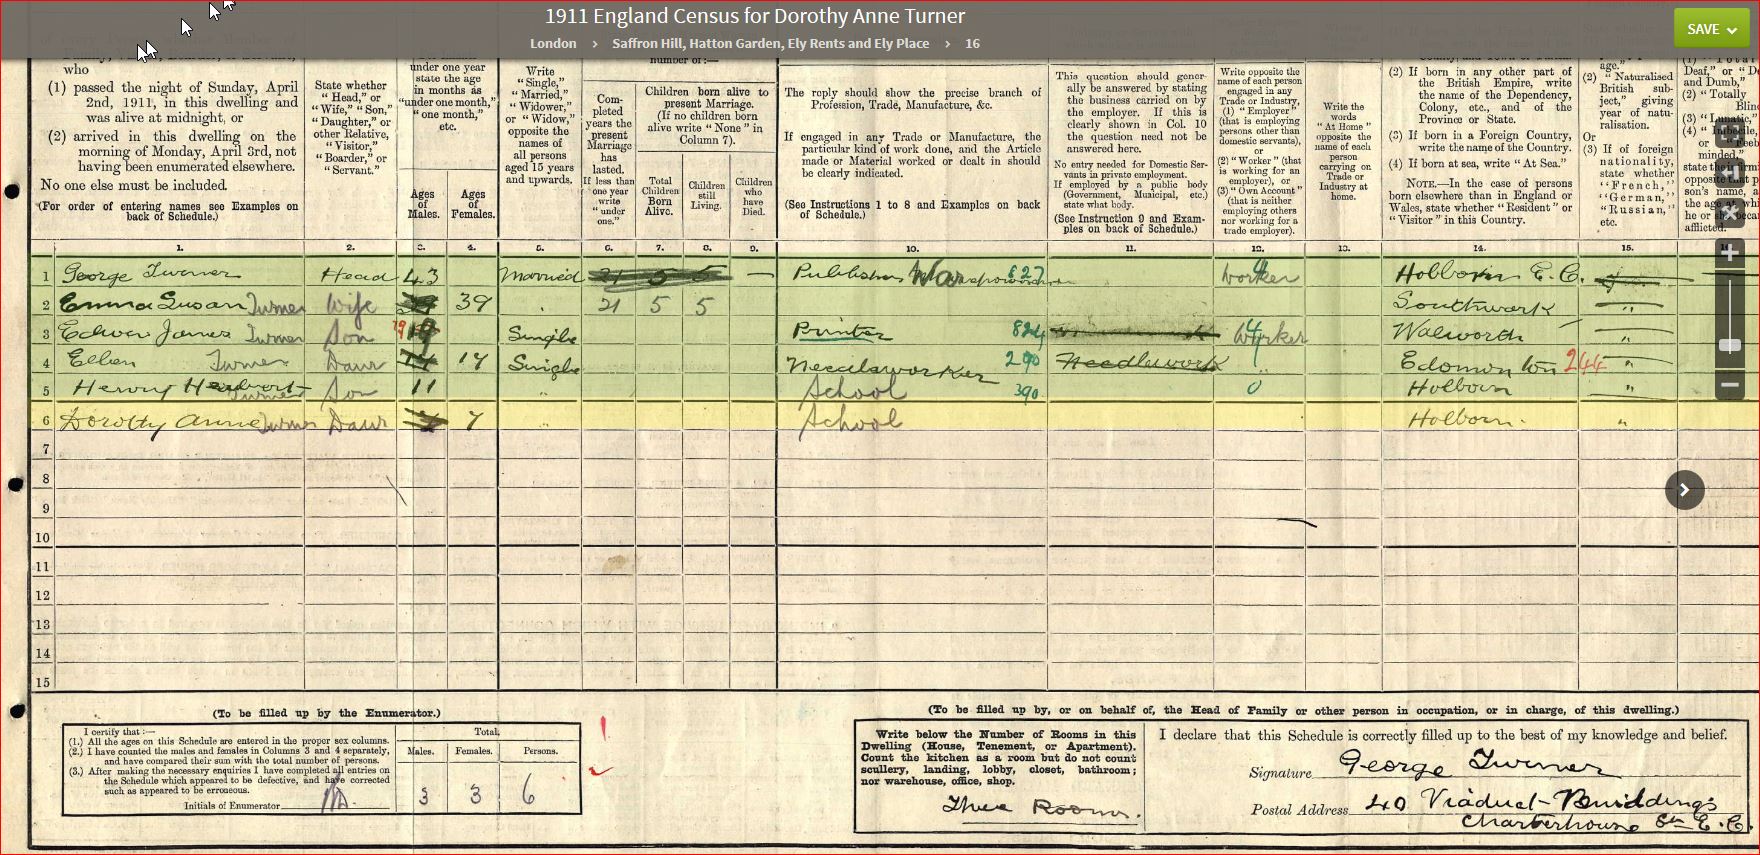 1911 England Census for Dorothy Anne Turner
SAVE
London > Saffron Hill, Hatton Garden, Ely Rents and Ely Place > 16
who
(1) passed the night of Sunday, April
2nd, 1911, in this dwelling and
was alive at midnight, or
(2) arrived in this dwelling on the
morning of Monday, April 3rd, not
having been enumerated elsewhere.
No one else must be included.
(For order of entering names see Examples on
back of Schedule.)
State whether
"Head," or
"Wife," "Son,"
"Daughter," or
other Relative,
"Visitor,"
"Boarder," or
"Servant."
under one year
state the age
in months as
"under one month,"
"one month,"
etc.
Ages
of
Males.
Ages
of
Females.
Write
"Single,"
"Married,"
"Widower,"
or "Widow,"
opposite the
names of
all persons
aged 15 years
and upwards.
number of:—
Com-
pleted
years the
present
Marriage
has
lasted.
If less than
one year
write
"under
one."
Children born alive to
present Marriage.
(If no children born
alive write "None" in
Column 7).
Total
Children
Born
Alive.
Children
still
Living.
Children
who
have
Died.
The reply should show the precise branch of
Profession, Trade, Manufacture, &c.
If engaged in any Trade or Manufacture, the
particular kind of work done, and the Article
made or Material worked or dealt in should
be clearly indicated.
(See Instructions 1 to 8 and Examples on back
of Schedule.)
This question should gener-
ally be answered by stating
the business carried on by
the employer. If this is
clearly shown in Col. 10
the question need not be
answered here.
No entry needed for Domestic Ser-
vants in private employment.
If employed by a public body
(Government, Municipal, etc.)
state what body.
(See Instruction 9 and Exam-
ples on back of Schedule.)
Write opposite the
name of each person
engaged in any
Trade or Industry,
(1) "Employer"
(that is employing
persons other than
domestic servants),
or
(2) "Worker" (that
is working for an
employer), or
(3) "Own Account"
(that is neither
employing others
nor working for a
trade employer).
Write the
words
"At Home"
opposite the
name of each
person
carrying on
Trade or
Industry at
home.
(2) If born in any other part of
the British Empire, write
the name of the Dependency,
Colony, etc., and of the
Province or State.
(3) If born in a Foreign Country,
write the name of the Country.
(4) If born at sea, write "At Sea."
NOTE.—In the case of persons
born elsewhere than in England or
Wales, state whether "Resident" or
"Visitor" in this Country.
age."
(2) "Naturalised
British sub-
ject," giving
year of natu-
ralisation.
Or
(3) If of foreign
nationality,
state whether
"French,"
"German,"
"Russian,"
etc.
1. 2. 3. 4. 5. 6. 7. 8. 9. 10. 11. 12. 13. 14. 15.
1 George Turner Head 43 Married 21 5 5 — Publisher 627 Worker Holborn E.C.
2 Emma Susan Turner Wife 39 " 21 5 5 Southwark "
3 James Turner Son 19 Single Printer 824 Worker Walworth "
4 Ellen Turner Daur 17 Single Needleworker 290 Needlework Edmonton 244 "
5 Henry Herbert Turner Son 11 " School 390 0 Holborn "
6 Dorothy Anne Turner Daur 7 " School Holborn. "
7
8
9
10
11
12
13
14
15
(To be filled up by the Enumerator.)
I certify that :—
(1.) All the ages on this Schedule are entered in the proper sex columns.
(2.) I have counted the males and females in Columns 3 and 4 separately,
and have compared their sum with the total number of persons.
(3.) After making the necessary enquiries I have completed all entries on
the Schedule which appeared to be defective, and have corrected
such as appeared to be erroneous.
Initials of Enumerator
Total.
Males. Females. Persons.
3 3 6
(To be filled up by, or on behalf of, the Head of Family or other person in occupation, or in charge, of this dwelling.)
Write below the Number of Rooms in this
Dwelling (House, Tenement, or Apartment).
Count the kitchen as a room but do not count
scullery, landing, lobby, closet, bathroom;
nor warehouse, office, shop.
Three Rooms.
I declare that this Schedule is correctly filled up to the best of my knowledge and belief.
Signature George Turner
Postal Address 40 Viaduct Buildings
Charterhouse St. E.C.